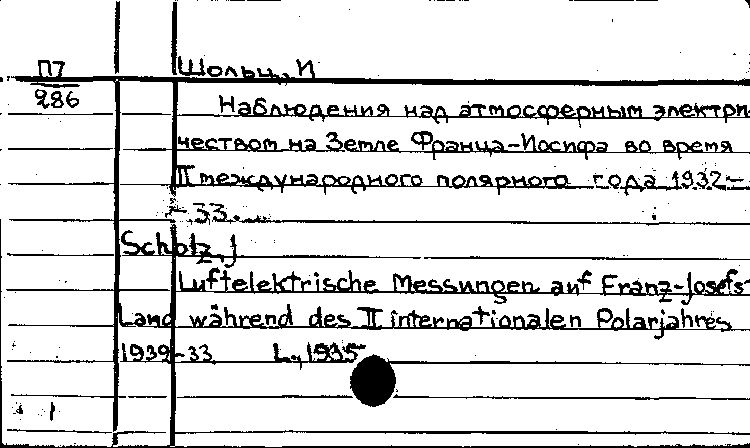 П7
286
Шольц, И
Наблюдения над атмосферным электри-
чеством на Земле Франца-Иосифа во время
II международного полярного года 1932-
-33.
Scholz, J
Luftelektrische Messungen auf Franz-Josefs-
Land während des II internationalen Polarjahres
1939-33 L., 1935